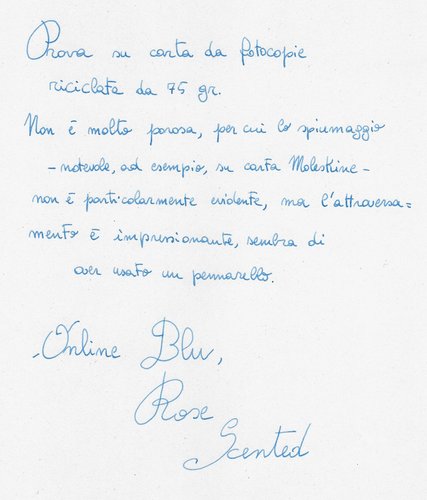 Prova su carta da fotocopie
riciclata da 75 gr.
Non è molto porosa, per cui lo spiumaggio
- notevole, ad esempio, su carta Moleskine -
non è particolarmente evidente, ma l'attraversa=
mento è impressionante, sembra di
aver usato un pennarello.
- Online Blu,
Rose
Scented